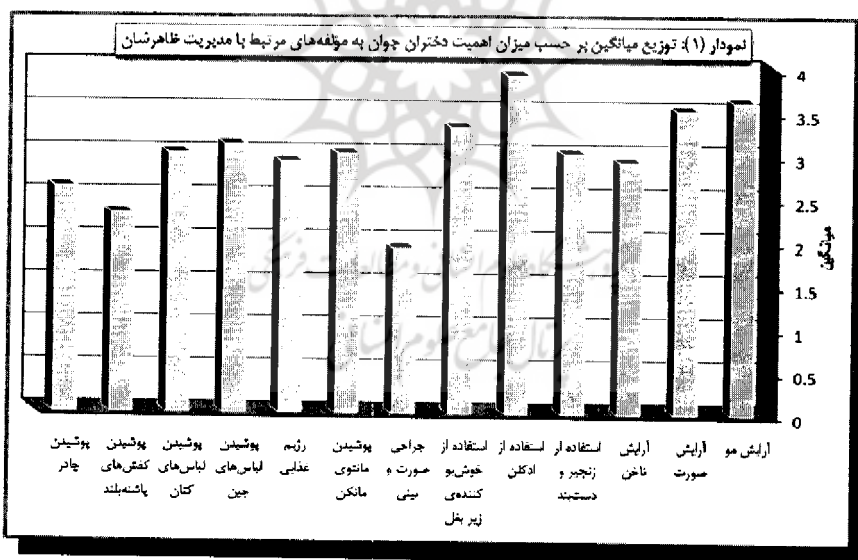 نمودار (۱): توزیع میانگین بر حسب میزان اهمیت دختران جوان به مؤلفه‌های مرتبط با مدیریت ظاهرشان
4
3.5
3
2.5
2
1.5
1
0.5
0
میانگین
آرایش مو
آرایش
صورت
آرایش
ناخن
استفاده از
زنجیر و
دستبند
استفاده از
ادکلن
استفاده از
خوش‌بو
کننده‌ی
زیر بغل
جراحی
صورت و
بینی
پوشیدن
مانتوی
مانکن
رژیم
غذایی
پوشیدن
لباس‌های
جین
پوشیدن
لباس‌های
کتان
پوشیدن
کفش‌های
پاشنه‌بلند
پوشیدن
چادر
پژوهشگاه علوم انسانی و مطالعات فرهنگی
پرتال جامع علوم انسانی